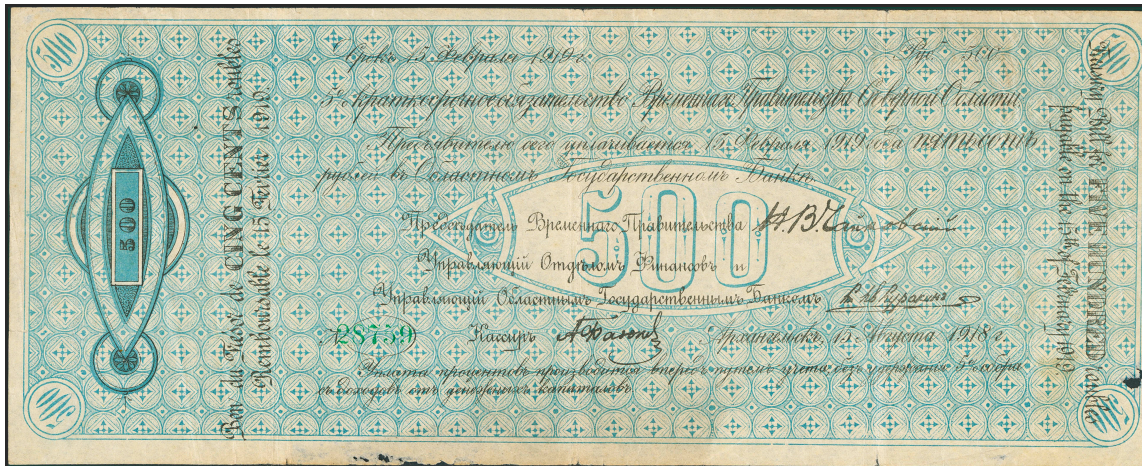 500
500
500
Bon du Trésor de CINQ CENTS roubles
Remboursable le 15 Fevrier 1919.
Срокъ 15 Февраля 1919 г. Руб. 500
5% Краткосрочное обязательство Временнаго Правительства Сѣверной Области
Предъявителю сего уплачивается 15 Февраля 1919 года пятьсотъ
рублей въ Областномъ Государственномъ Банкѣ.
500
Предсѣдатель Временнаго Правительства Н. В. Чайковский
Управляющий Отдѣломъ Финансовъ и
Управляющий Областнымъ Государственнымъ Банкомъ Куракинъ
№ 28759 Кассиръ Архангельскъ, 15 Августа 1918 г.
Уплата процентовъ производится впередъ путемъ учета, безъ удержания 5% сбора
съ доходовъ отъ денежныхъ капиталовъ.
Treasury Bill for FIVE HUNDRED roubles
payable on the 15th of February 1919
500
500